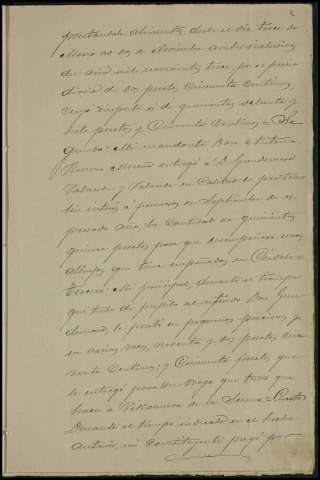 prestándole alimentos, desde el dia trece de
Marzo al dos de Noviembre ambos inclusives
del año mil novecientos trece, por el precio
diario de dos pesetas cincuenta centimos,
cuyo importe es de quinientas ochenta y
siete pesetas y cincuenta centimos = Se
gundo: Mi mandante Don Antonio
Romero Moreno entregó á D. Gumersindo
Valande y Valande en calidad de préstamo
sin interés á primeros de Septiembre de es
presado año, la cantidad de quinientas
quince pesetas para que desempeñara unas
alhajas que tenia empeñadas en Córdoba =
Tercero: Mi principal, durante el tiempo
que tubo de pupilo al referido Don Gumer
sindo, le prestó en pequeñas porciones y
en varias veces, noventa y dos pesetas cua
renta centimos; y cincuenta pesetas que
le entregó para un viaje que tuvo que
hacer á Villanueva de la Serena = Cuarto
Durante el tiempo indicado en el hecho
anterior, mi constituyente pagó por